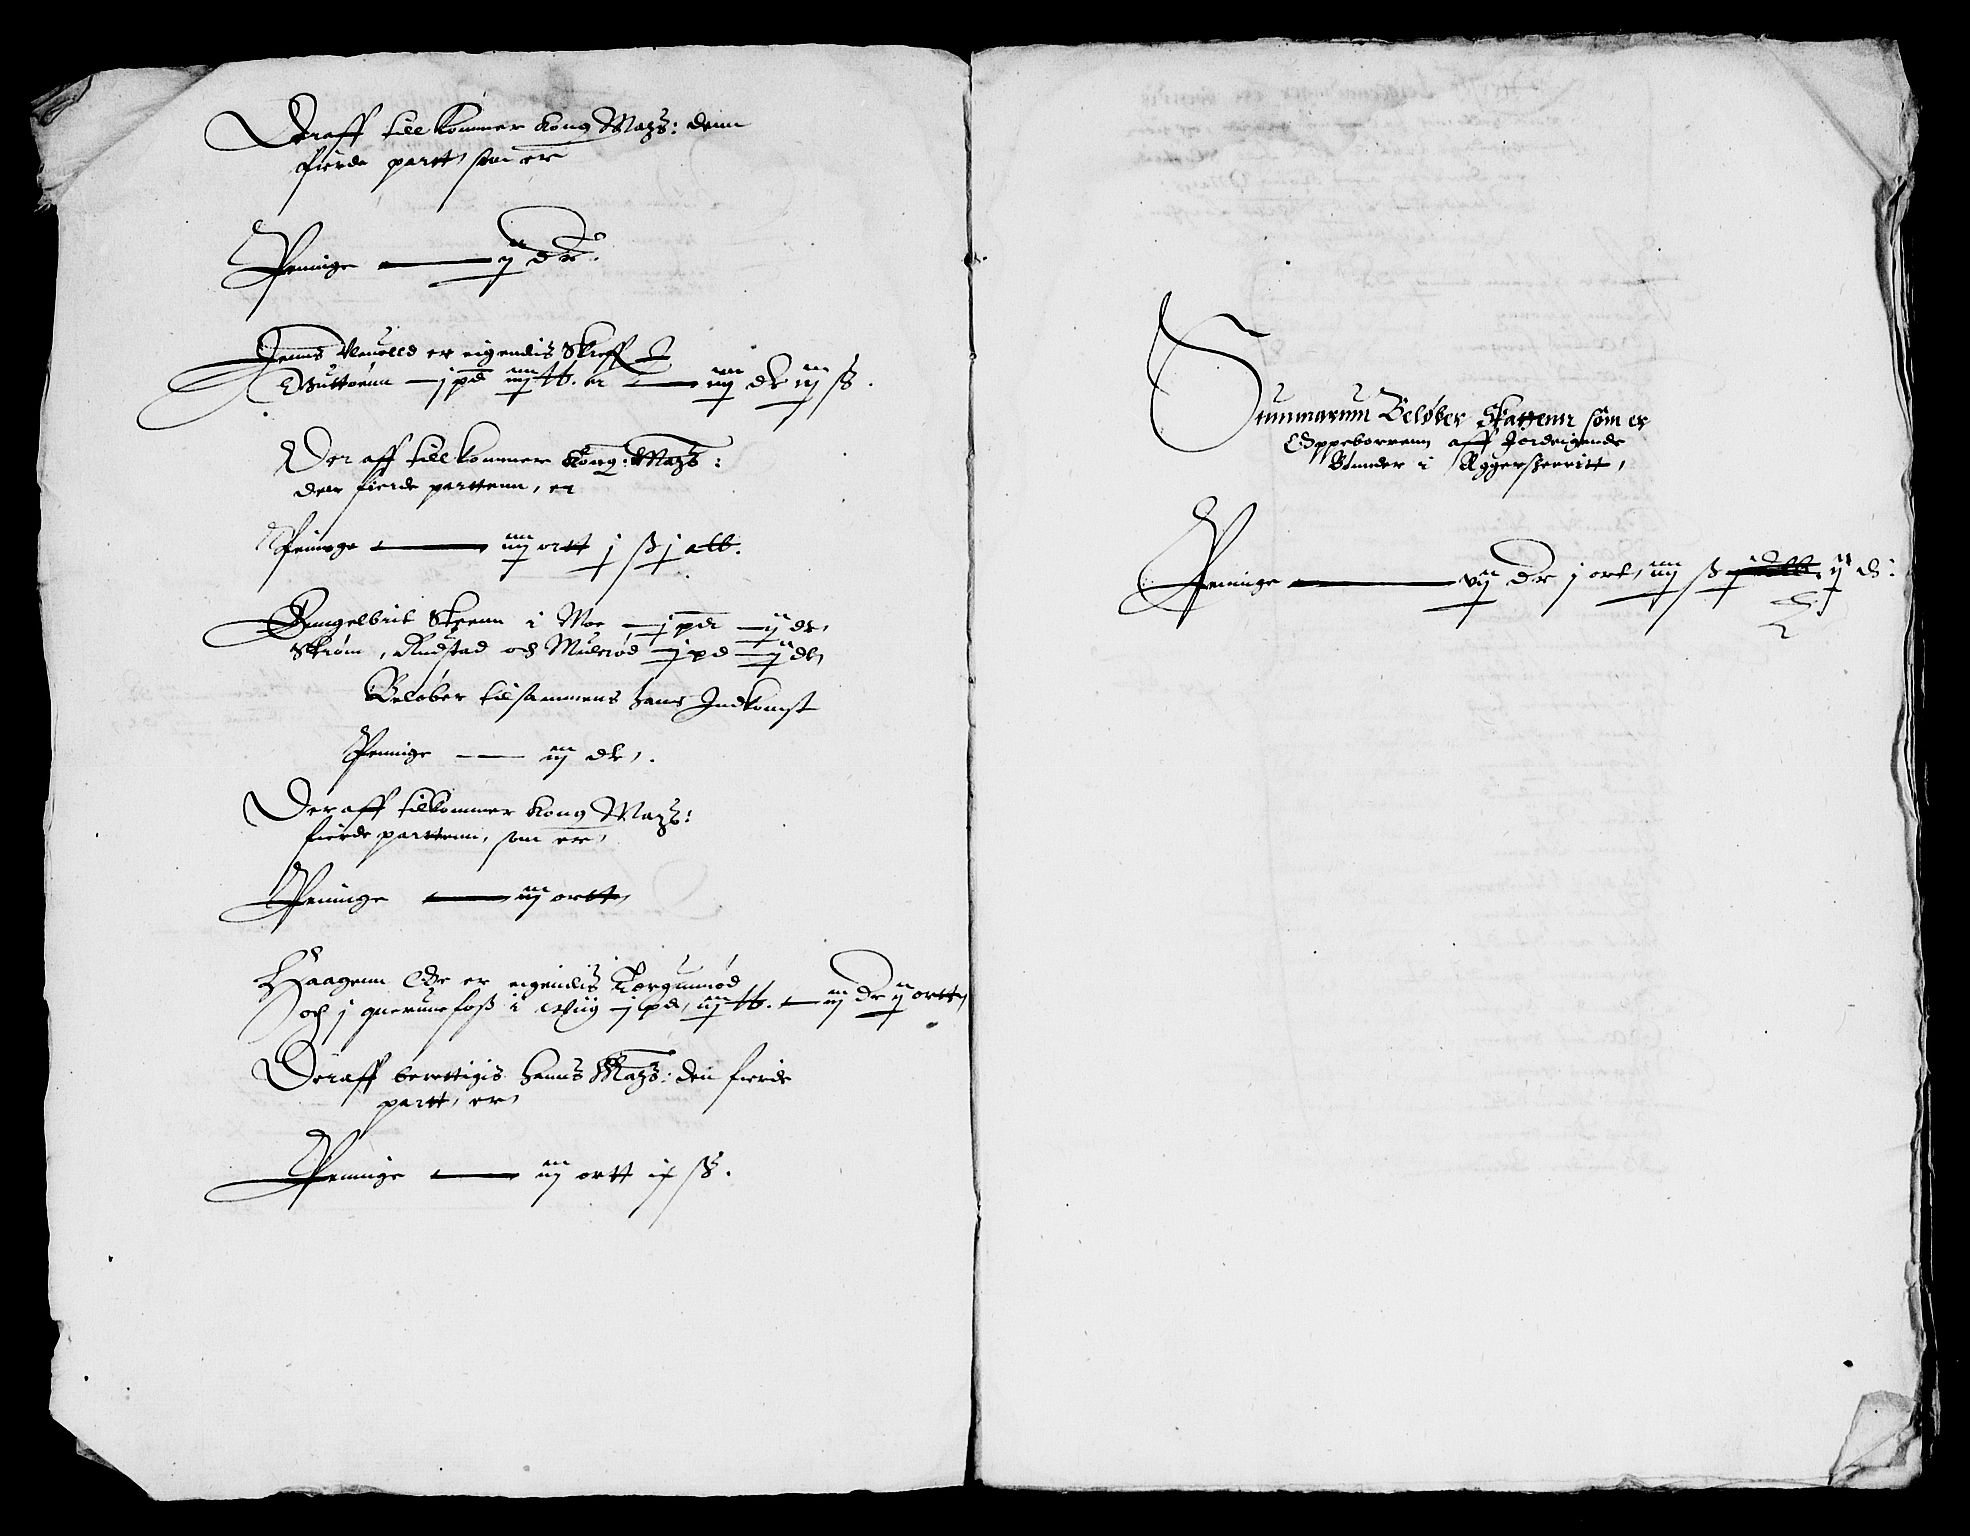 Deraff till kommer Kong Matzs: denn
fierde partt, som er
Peninge — ij dr.
Jenns er eigendis Skieff I
Guttorm — j pd iiij ℔. er — iiij dr iij ß.
Der aff till kommer Kong: Matzs:
den fierde parttenn, er
Peninge — iiij ortt j ß j alb.
Engelbrit Skeenn i Moe — j pd — ij dr,
Skrøm, Rudstad och Mulerød — j pd — ij dr,
Beløber tilsammens hans Indkomst
Peninge — iij dr.
Der aff tilkommer Kong Matzs:
fierde parttenn, som er,
Peninge — iij ortt,
Haagenn Øe er eigendis Torgunrød
och j querne foß i Wiig — j pd, iij ℔. — iij dr ij ortt,
Deraff berettigis hanns Matzs: den fierde
partt, er,
Peninge — iij ortt ix ß.
Summarum Beløber Skattenn som er
Oppeborrenn aff Jordeigende
Bønder i Aggersherritt,
Peninge — vij dr j ort, iiij ß ij d: